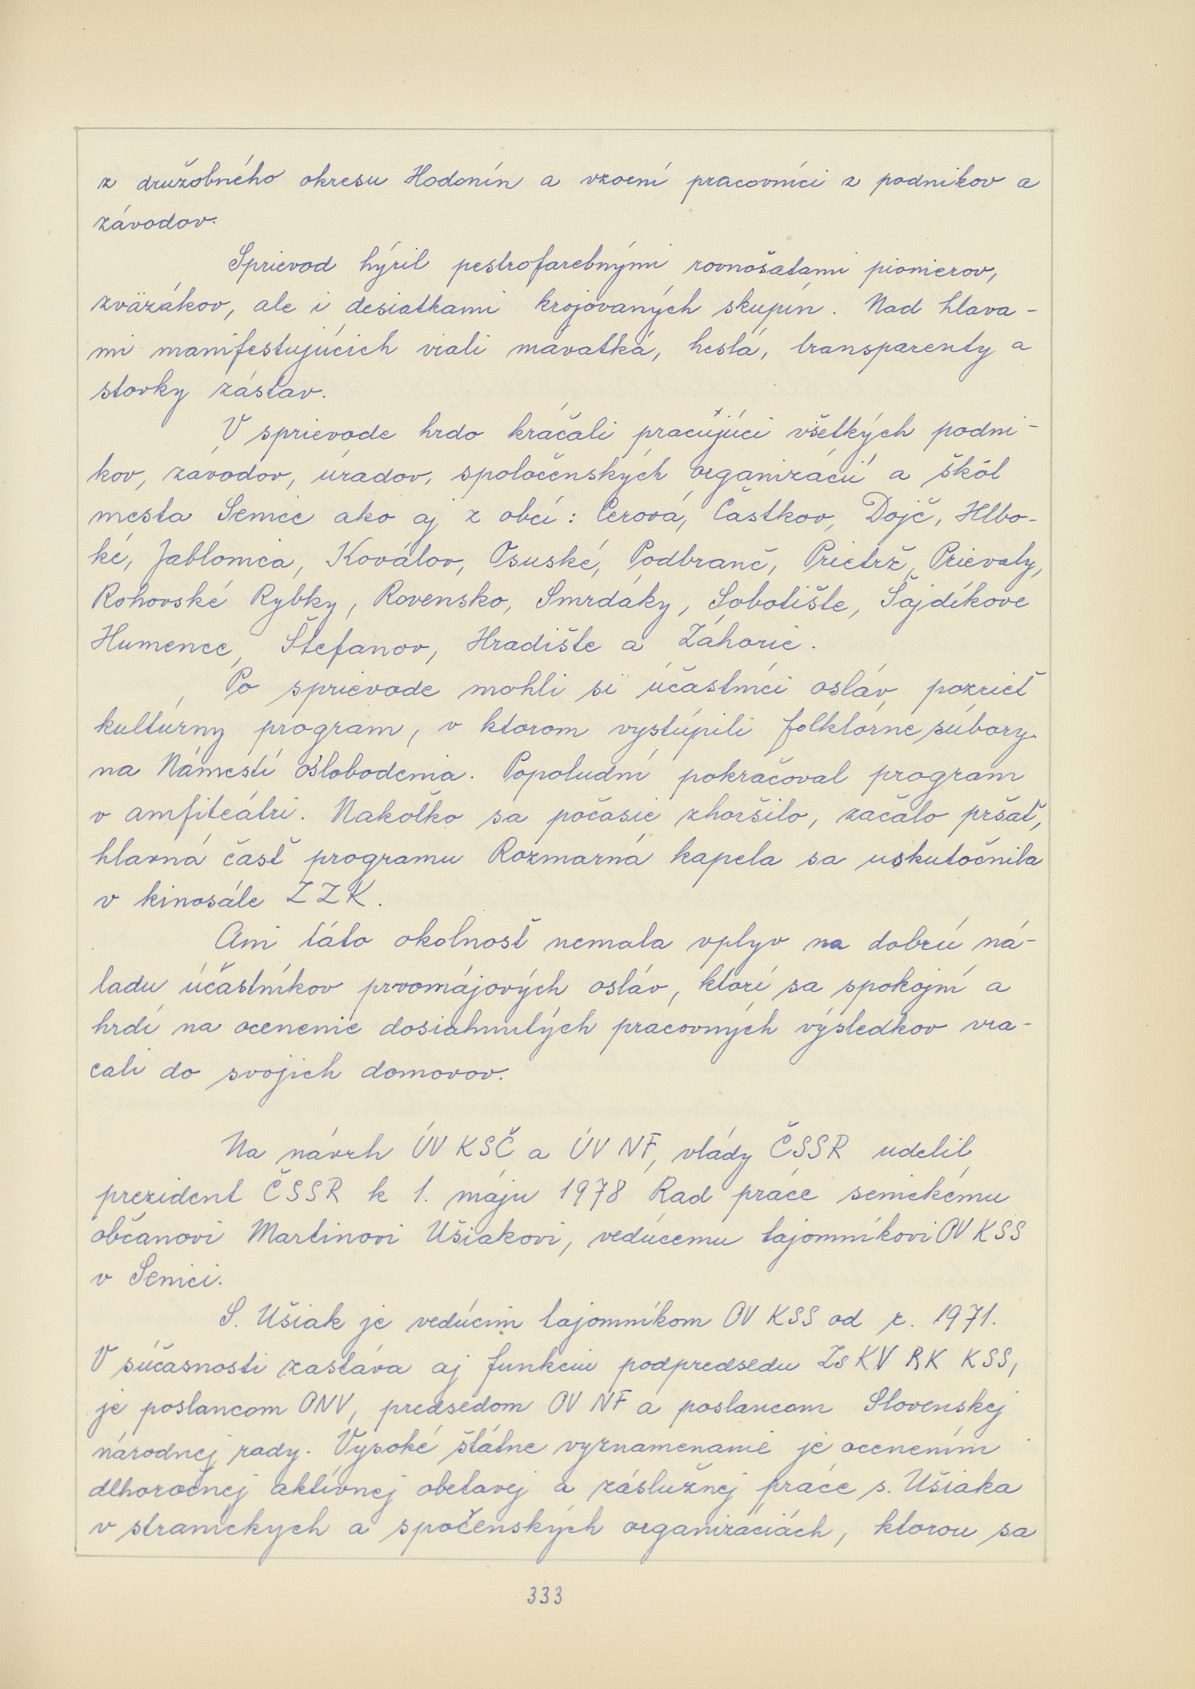 z družobného okresu Hodonín a vzorní pracovníci z podnikov a
závodov.
Sprievod hýril pestrofarebnými rovnošatami pionierov,
zväzákov, ale i desiatkami krojovaných skupín. Nad hlava-
mi manifestujúcich viali mávatká, heslá, transparenty a
stovky zástav.
V sprievode hrdo kráčali pracujúci všetkých podni-
kov, závodov, úradov, spoločenských organizácií a škôl
mesta Senice ako aj z obcí: Cerová, Častkov, Dojč, Hlbo-
ké, Jablonica, Koválov, Osuské, Podbranč, Prietrž, Prievaly,
Rohovské Rybky, Rovensko, Smrdáky, Sobotište, Šajdíkove
Humence, Štefanov, Hradište a Záhorie.
Po sprievode mohli si účastníci osláv pozrieť
kultúrny program, v ktorom vystúpili folklórne súbory
na Námestí oslobodenia. Popoludní pokračoval program
v amfiteátri. Nakoľko sa počasie zhoršilo, začalo pršať,
hlavná časť programu Rozmarná kapela sa uskutočnila
v kinosále ZZK.
Ani táto okolnosť nemala vplyv na dobrú ná-
ladu účastníkov prvomájových osláv, ktorí sa spokojní a
hrdí na ocenenie dosiahnutých pracovných výsledkov vra-
cali do svojich domovov.
Na návrh ÚV KSČ a ÚV NF, vlády ČSSR udelil
prezident ČSSR k 1. máju 1978 Rad práce senickému
občanovi Martinovi Ušiakovi, vedúcemu tajomníkovi OV KSS
v Senici.
S. Ušiak je vedúcim tajomníkom OV KSS od r. 1971.
V súčasnosti zastáva aj funkciu podpredsedu ZsKV RK KSS,
je poslancom ONV, predsedom OV NF a poslancom Slovenskej
národnej rady. Vysoké štátne vyznamenanie je ocenením
dlhoročnej aktívnej obetavej a záslužnej práce s. Ušiaka
v straníckych a spočenských organizáciách, ktorou sa
333